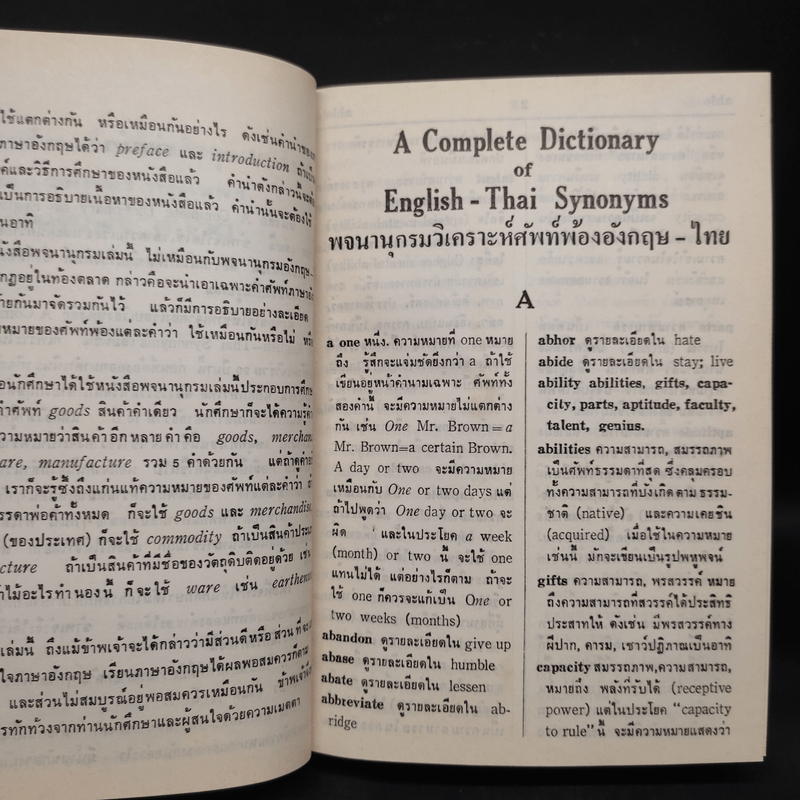 ใช้แตกต่างกัน หรือเหมือนกันอย่างไร ดังเช่นคำนำของ
ภาษาอังกฤษได้ว่า preface และ introduction ถ้าเป็น
ค์และวิธีการศึกษาของหนังสือแล้ว คำนำดังกล่าวนี้จะต้อง
เป็นการอธิบายเนื้อหาของหนังสือแล้ว คำนำนั้นจะต้องใช้
นอาทิ
นังสือพจนานุกรมเล่มนี้ ไม่เหมือนกับพจนานุกรมอังกฤษ-
กฏอยู่ในท้องตลาด กล่าวคือจะนำเอาเฉพาะคำศัพท์ภาษาอัง
ายกันมาจัดรวมกันไว้ แล้วก็มีการอธิบายอย่างละเอียด
หมายของศัพท์พ้องแต่ละคำว่า ใช้เหมือนกันหรือไม่ หรือ
อนักศึกษาได้ใช้หนังสือพจนานุกรมเล่มนี้ประกอบการศึกษ
คำศัพท์ goods สินค้าคำเดียว นักศึกษาก็จะได้ความรู้คำ
วามหมายว่าสินค้าอีกหลายคำคือ goods, merchand
are, manufacture รวม 5 คำด้วยกัน แต่ถ้าดูคำอธิ
เราก็จะรู้ซึ้งถึงแก่นแท้ความหมายของศัพท์แต่ละคำว่า ถ้
รรดาพ่อค้าทั้งหมด ก็จะใช้ goods และ merchandise
(ของประเทศ) ก็จะใช้ commodity ถ้าเป็นสินค้าประเภ
cture ถ้าเป็นสินค้าที่มีชื่อของวัตถุดิบติดอยู่ด้วย เช่น
ำไม้อะไรทำนองนี้ ก็จะใช้ ware เช่น earthenw
เล่มนี้ ถึงแม้ข้าพเจ้าจะได้กล่าวว่ามีส่วนดีหรือส่วนที่จะ
ใจภาษาอังกฤษ เรียนภาษาอังกฤษได้ผลพอสมควรก็ตาม
และส่วนไม่สมบูรณ์อยู่พอสมควรเหมือนกัน ข้าพเจ้าจึง
รทักท้วงจากท่านนักศึกษาและผู้สนใจด้วยความเมตตา
A Complete Dictionary
of
English - Thai Synonyms
พจนานุกรมวิเคราะห์ศัพท์พ้องอังกฤษ - ไทย
A
a one หนึ่ง. ความหมายที่ one หมาย
ถึง รู้สึกจะแจ่มชัดยิ่งกว่า a ถ้าใช้
เขียนอยู่หน้าคำนามเฉพาะ ศัพท์ทั้ง
สองคำนี้ จะมีความหมายไม่แตกต่าง
กัน เช่น One Mr. Brown=a
Mr. Brown=a certain Brown.
A day or two จะมีความหมาย
เหมือนกับ One or two days แต่
ถ้าไปพูดว่า One day or two จะ
ผิด และในประโยค a week
(month) or two นี้ จะใช้ one
แทนไม่ได้ แต่อย่างไรก็ตาม ถ้าจะ
ใช้ one ก็ควรจะแก้เป็น One or
two weeks (months)
abandon ดูรายละเอียดใน give up
abase ดูรายละเอียดใน humble
abate ดูรายละเอียดใน lessen
abbreviate ดูรายละเอียดใน ab-
ridge
abhor ดูรายละเอียดใน hate
abide ดูรายละเอียดใน stay; live
ability abilities, gifts, capa-
city, parts, aptitude, faculty,
talent, genius.
abilities ความสามารถ, สมรรถภาพ
เป็นศัพท์ธรรมดาที่สุด ซึ่งคลุมครอบ
ทั้งความสามารถที่บังเกิดตาม ธรรม-
ชาติ (native) และความเคยชิน
(acquired) เมื่อใช้ในความหมาย
เช่นนี้ มักจะเขียนเป็นรูปพหูพจน์
gifts ความสามารถ, พรสวรรค์ หมาย
ถึงความสามารถที่สวรรค์ได้ประสิทธิ
ประสาทให้ ดังเช่น มีพรสวรรค์ทาง
ฝีปาก, คารม, เชาว์ปฏิภาณเป็นอาทิ
capacity สมรรถภาพ,ความสามารถ,
หมายถึง พลังที่รับได้ (receptive
power) แต่ในประโยค "capacity
to rule" นี้ จะมีความหมายแสดงว่า